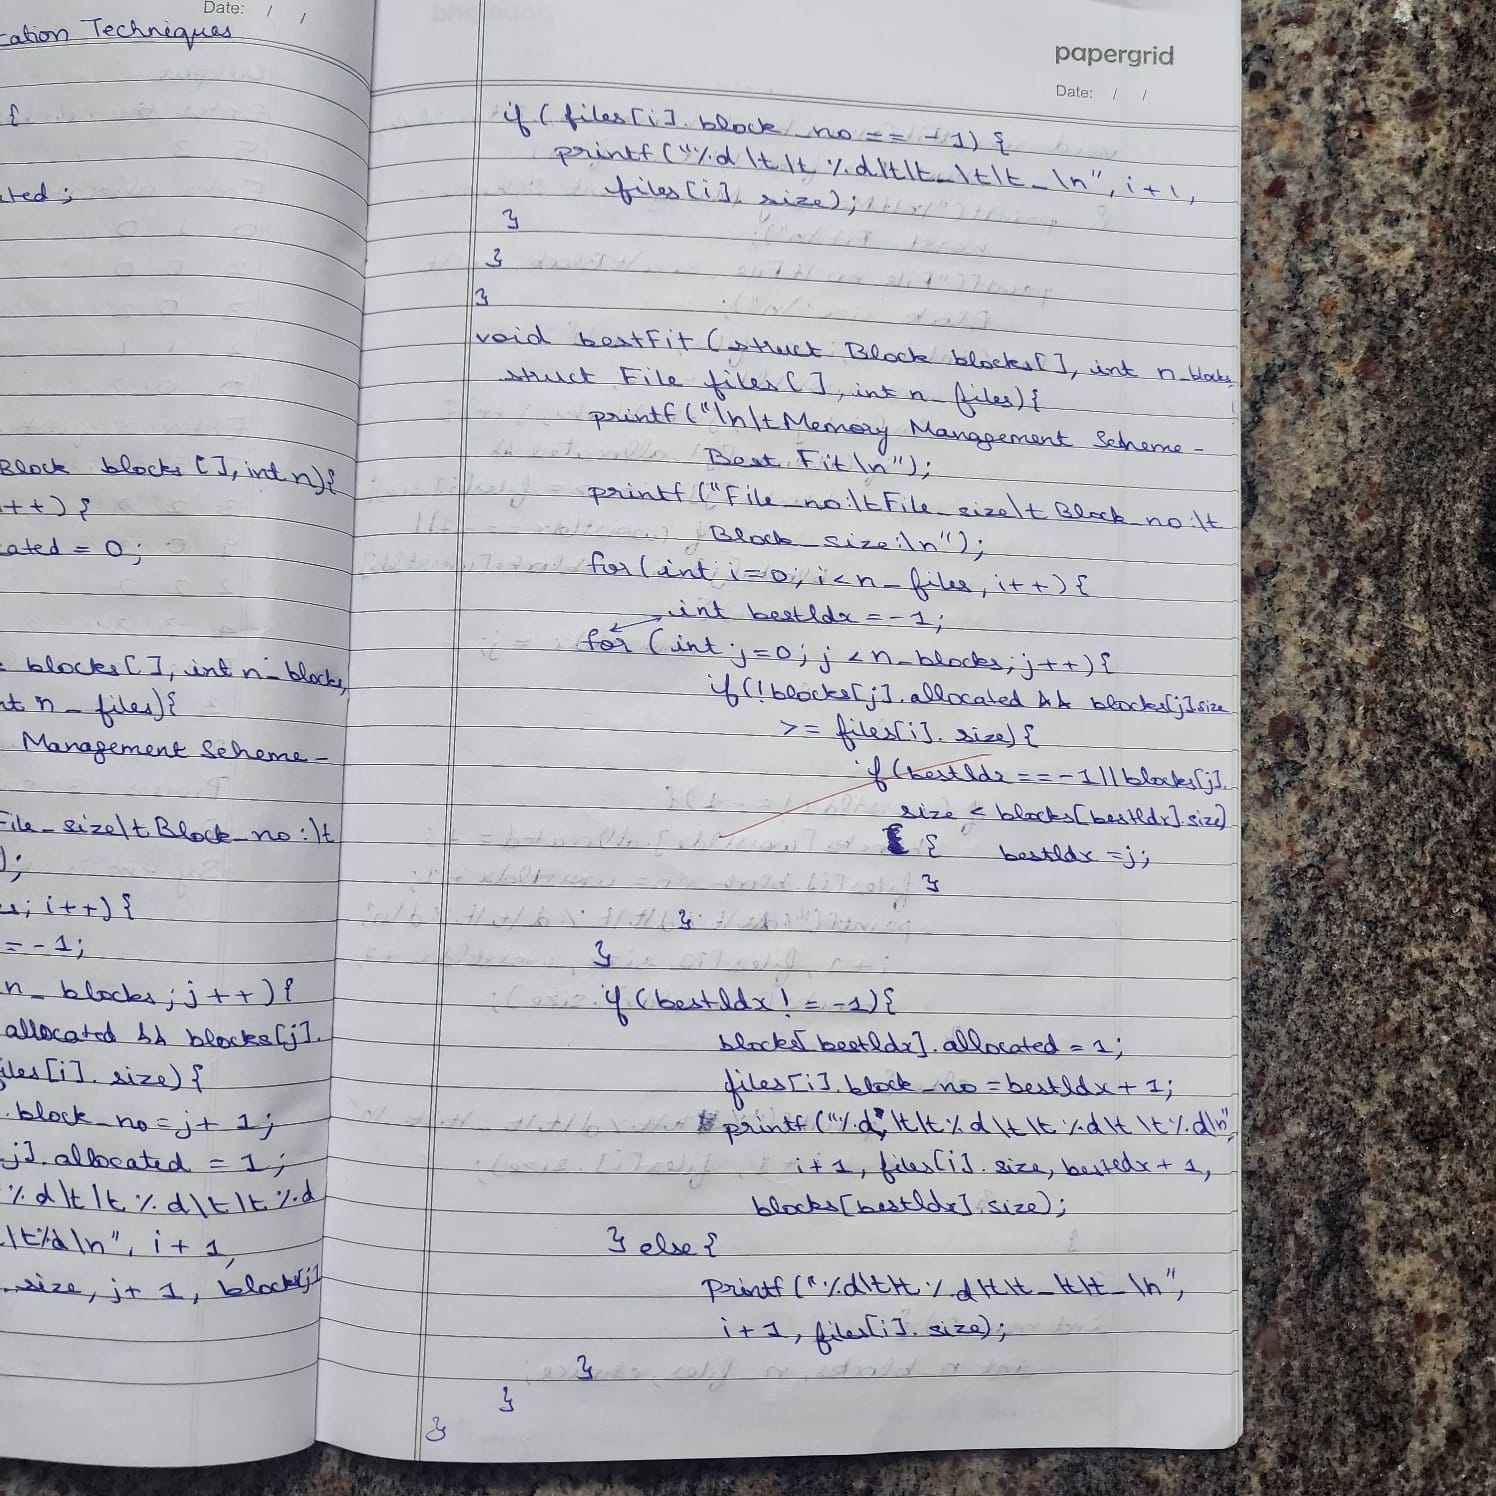 Date: / /
cation Techniques
{
ated;
Block blocks [], int n){
++) {
cated = 0;
blocks[], int n_blocks,
nt n_files){
Management Scheme-
File_size\t Block_no:\t
);
s; i++) {
= -1;
n_blocks; j++) {
allocated && blocks[j].
iles[i]. size) {
.block_no = j+ 1;
j]. allocated = 1;
%d\t\t %d\t\t %d
\t%d\n", i + 1,
.size, j+ 1, blocks[j]
papergrid
Date: / /
if ( files[i]. block_no == -1) {
printf ("%d \t\t %d\t\t_\t\t_\n", i+1,
files[i]. size);
}
}
}
void bestFit ( struct Block blocks[], int n_blocks,
struct File files [], int n_files){
printf ("\n\t Memory Management Scheme-
Best Fit\n");
printf ("File_no:\tFile_size\t Block_no:\t
Block_size:\n");
for( int i=0; i<n_files, i++) {
int bestIdx = -1;
for (int j=0; j <n_blocks; j++) {
if(! blocks[j]. allocated && blocks[j]size
>= files[i]. size) {
if (bestIdx == -1 || blocks[j].
size < blocks[bestIdx].size)
{ bestIdx =j;
}
}
}
if (bestIdx != -1){
blocks[bestIdx]. allocated = 1;
files[i]. block_no = bestIdx + 1;
printf ("%d \t\t %d \t\t %d\t \t%d\n",
i+1, files[i]. size, bestIdx + 1,
blocks[bestIdx].size);
} else {
printf ("%d\t\t %d\t\t_\t\t_\n",
i+1, files[i]. size);
}
}
}